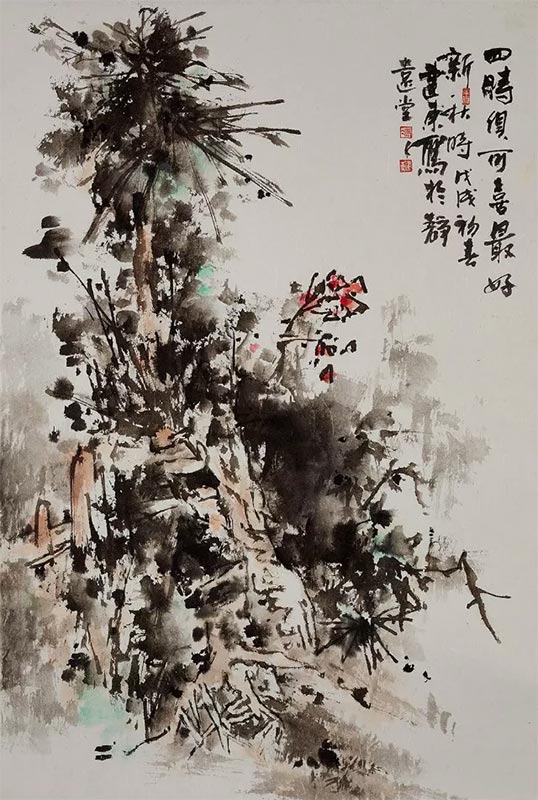 四時俱可喜最好
新秋時戊戌初春
寫於靜
遠堂